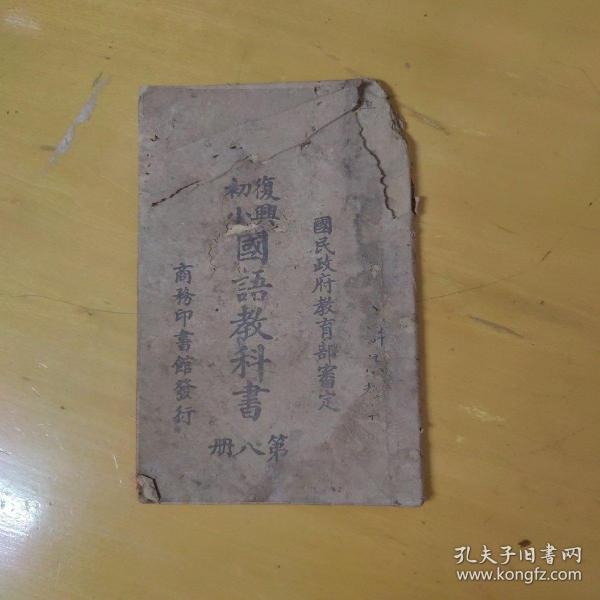 國民政府教育部審定
復興
初小
國語教科書
第八册
商務印書館發行
孔夫子旧书网
www.kongfz.com